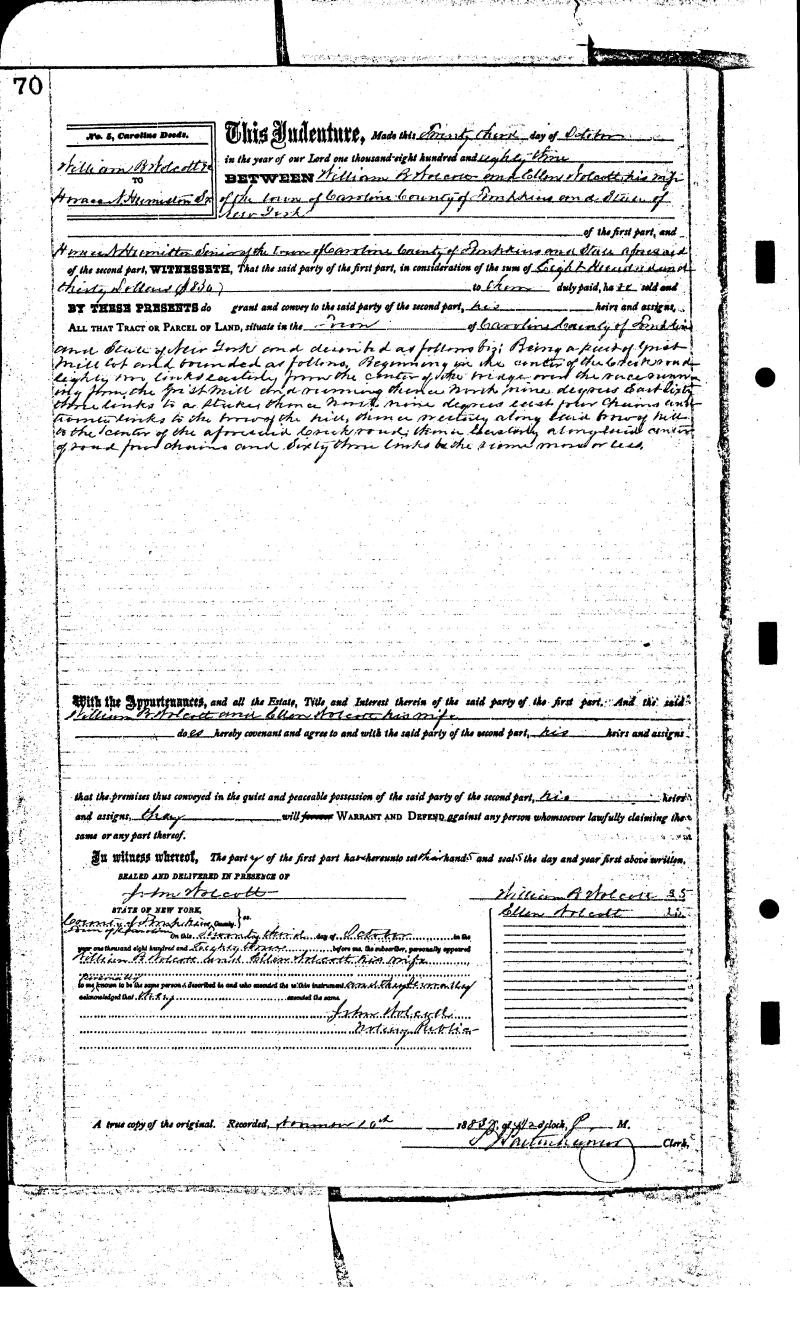 70
No. 5, Caroline Deeds.
William B Wolcott
TO
Horace N Humiston Sr
This Indenture, Made this Twenty third day of October
in the year of our Lord one thousand eight hundred and eighty three
BETWEEN William B Wolcott and Ellen Wolcott his wife
of the town of Caroline County of Tompkins and State of
New York
of the first part, and
Horace N Humiston Senior of the Town of Caroline County of Tompkins and State aforesaid
of the second part, WITNESSETH, That the said party of the first part, in consideration of the sum of Eight Hundred and
thirty Dollars ($830) to them duly paid, ha ve sold and
BY THESE PRESENTS do grant and convey to the said party of the second part, his heirs and assigns,
ALL THAT TRACT OR PARCEL OF LAND, situate in the Town of Caroline County of Tompkins
and State of New York and described as follows viz; Being a part of Grist
Mill lot and bounded as follows, Beginning in the center of the Creek road
eighty links easterly from the center of the bridge over the race runn
ing from the Grist Mill and running thence North nine degrees East Sixty
three links to a stake; thence North nine degrees east four Chains and
links to the brow of the hill, thence westerly along said brow of hill
to the center of the aforesaid Creek road; thence Easterly along said center
of road four chains and Sixty three links be the same more or less.
With the Appurtenances, and all the Estate, Title and Interest therein of the said party of the first part. And the said
William B Wolcott and Ellen Wolcott his wife
do es hereby covenant and agree to and with the said party of the second part, his heirs and assigns
that the premises thus conveyed in the quiet and peaceable possession of the said party of the second part, his heirs
and assigns, they will forever WARRANT AND DEFEND against any person whomsoever lawfully claiming the
same or any part thereof.
In witness whereof, The part y of the first part ha ve hereunto set their hand s and seal s the day and year first above written.
SEALED AND DELIVERED IN PRESENCE OF
John Wolcott
William B Wolcott L S
Ellen Wolcott L S
STATE OF NEW YORK,
County of Tompkins County. } ss.
Town of Caroline On this Twenty third day of October in the
year one thousand eight hundred and Eighty three before me, the subscriber, personally appeared
William B Wolcott and Ellen Wolcott his wife
personally
to me known to be the same person s described in and who executed the within instrument and they severally
acknowledged that they executed the same.
John Wolcott
Notary Public
A true copy of the original. Recorded, 10th 1883, at 2 o'clock, P. M.
Clerk.